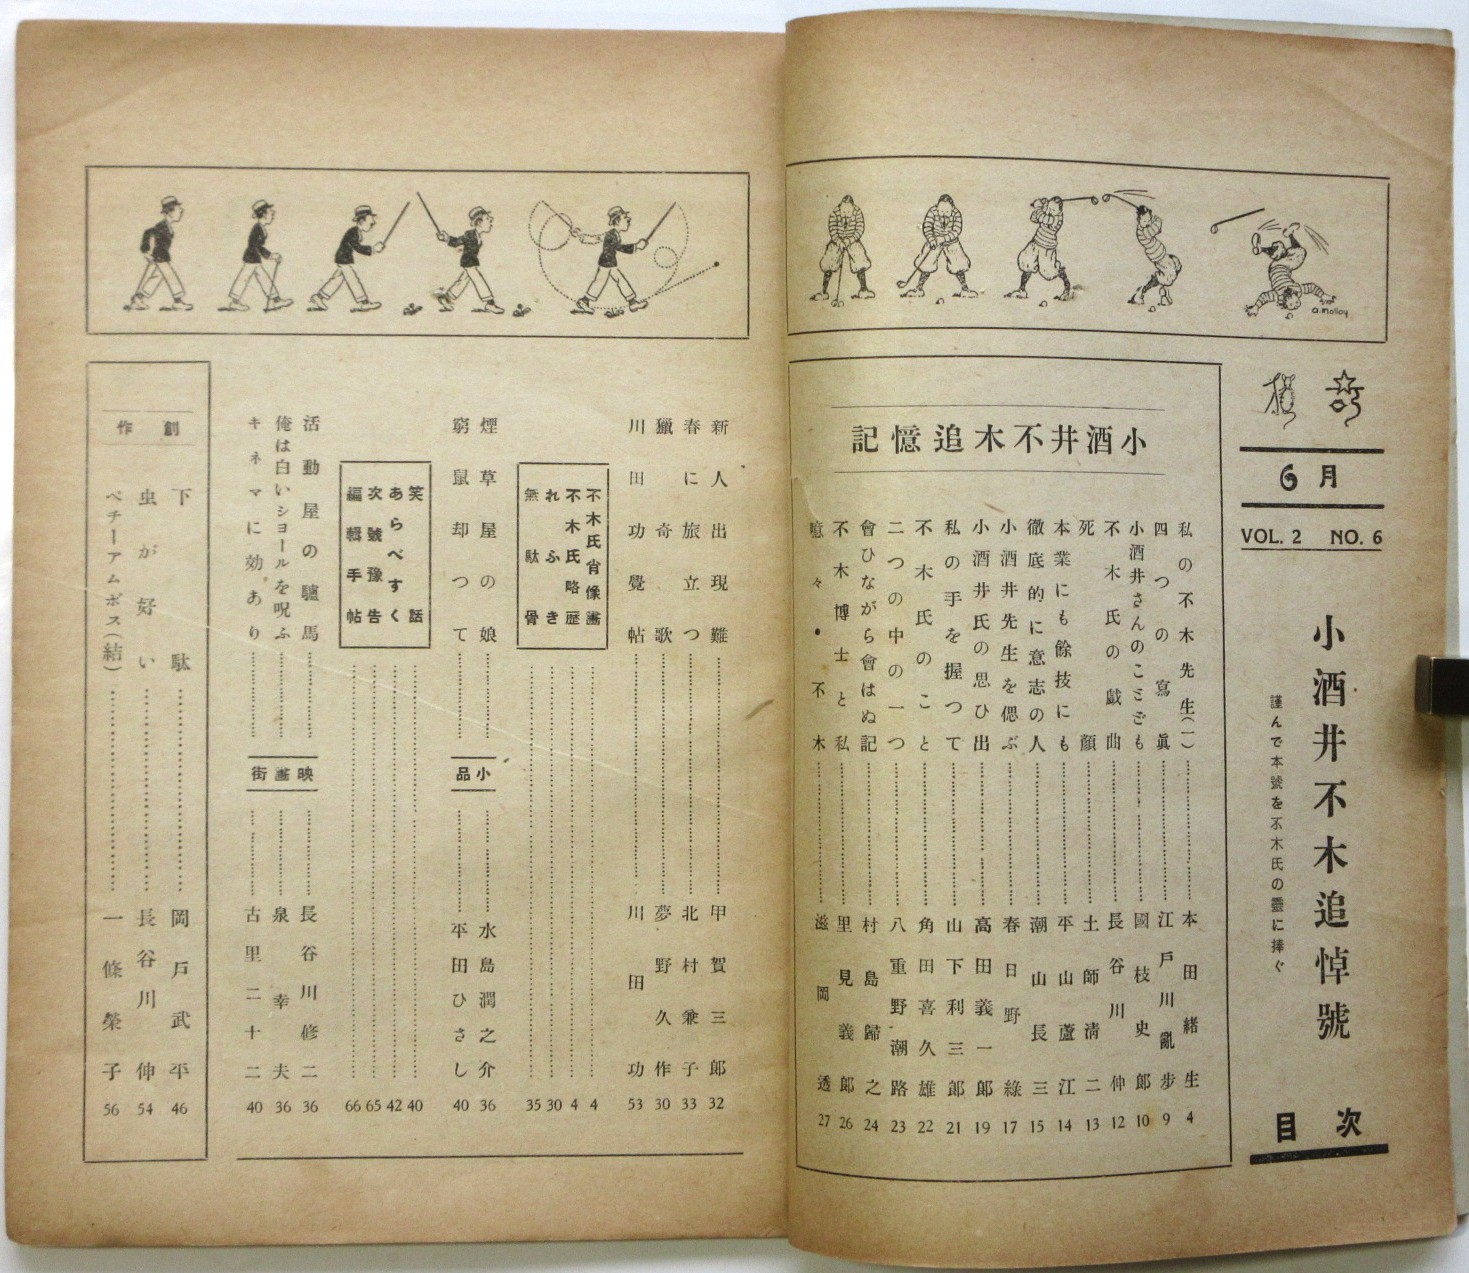 猟奇
6月
VOL. 2 NO. 6
小酒井不木追悼號
謹んで本號を不木氏の靈に捧ぐ
目次
a. Molloy
小酒井不木追憶記
私の不木先生(一)………本田緒生 4
四つの寫眞………江戸川亂歩 9
小酒井さんのことども………國枝史郎 10
不木氏の戯曲………長谷川伸 12
死顔………土師清二 13
本業にも餘技にも………平山蘆江 14
徹底的に意志の人………潮山長三 15
小酒井先生を偲ぶ………春日野緑 17
小酒井氏の思ひ出………高田義一郎 19
私の手を握つて………山下利三郎 21
不木氏のこと………角田喜久雄 22
二つの中の一つ………八重野潮路 23
會ひながら會はぬ記………村島歸之 24
不木博士と私………里見義郎 26
噫々・不木………滋岡透 27
新人出現難………甲賀三郎 32
春に旅立つ………北村兼子 33
獵奇歌………夢野久作 30
川田功覺帖………川田功 53
不木氏肖像畫………4
不木氏略歴………4
れふき………30
無駄骨………35
煙草屋の娘………小品………水島潤之介 36
窮鼠却つて………平田ひさし 40
笑話………40
あらべすく………42
次號豫告………65
編輯手帖………66
活動屋の驢馬………映畫街………長谷川修二 36
俺は白いショールを呪ふ………泉幸夫 36
キネマに効あり………古里二十二 40
創作
下駄………岡戸武平 46
虫が好い………長谷川伸 54
ベチーアムボス(結)………一條榮子 56